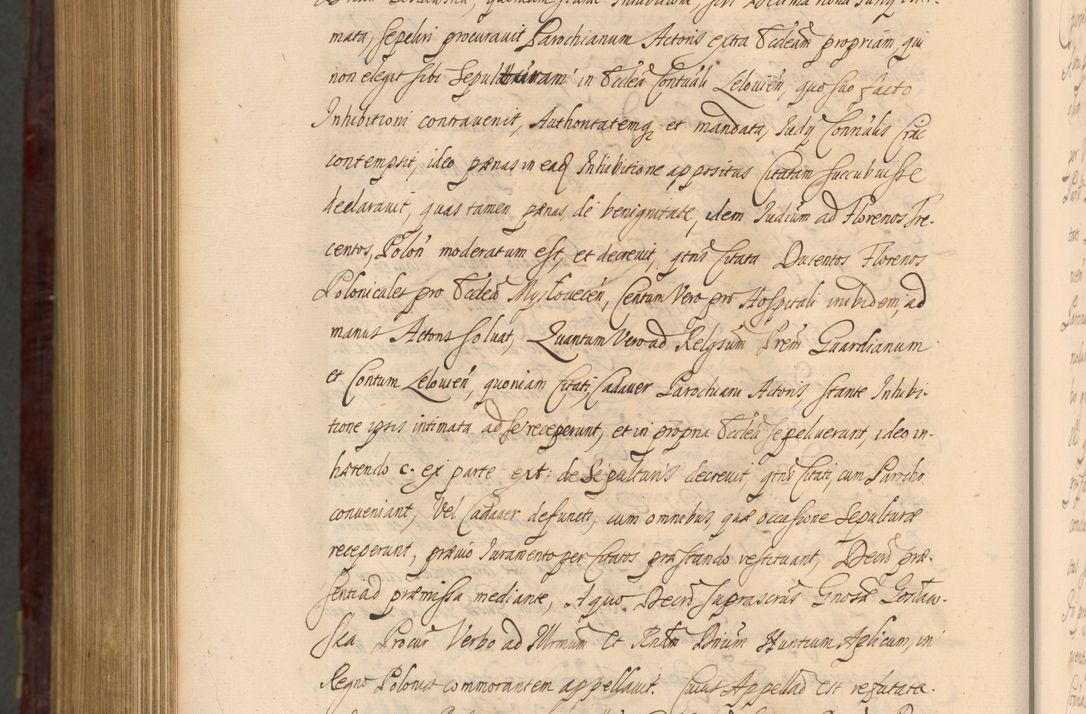 mata, sepeliri procurauit Parochianum Actoris extra Eccleam propriam, qui
non elegit sibi Sepulturam in Ecclea Contuali Lelouien, quo suo facto
Inhibitioni contrauenit, Authoritatemq et mandata Iudy Connalis
contempsit, ideo pænas in eaq Inhibitione appositas Citatam succubuisse
declarauit, quas tamen pænas, de benignitate, idem Iudium ad Florenos Tre-
centos, Polon moderatum est, et decreuit, qtns Citata Ducentos Florenos
Polonicales pro Ecclea Myslouecen, Centum Vero pro Hospitali inibidem, ad
manus Actoris soluat, Quantum Vero ad Relgsum Prem Guardianum
et Contum Lelouien, quoniam Citati, Cadauer Parochiani Actoris, stante Inhibi-
tione ipsis intimata ad se receperunt, et in propria Ecclea sepeliuerunt, ideo in-
hærendo c. ex parte ext: de Sepulturis decreuit, qtns Citati, cum Parocho
conueniant, Vel Cadauer defuncti, cum omnibus, quæ occasione Sepulturæ
receperunt, præuio Iuramento per Citatos præstando restituant, Decri præ-
sentiad præmissa mediante, A quo Decro suprascrus Gnosa
ska Procur Verbo ad Illmum et Rndm Dnum Nuntium Aplicum, in
Regno Poloniæ commorantem appellauit. Cuius Appellao est refutata.